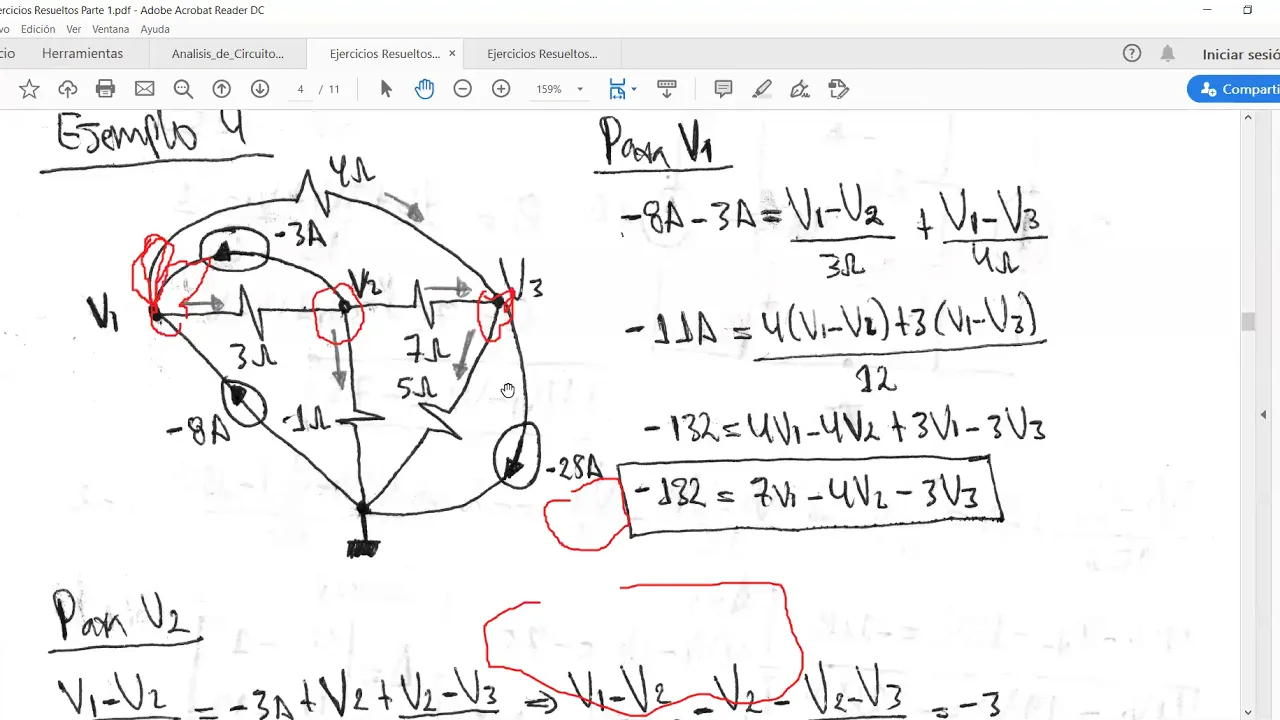 ercicios Resueltos Parte 1.pdf - Adobe Acrobat Reader DC
vo Edición Ver Ventana Ayuda
cio Herramientas Analisis_de_Circuito... Ejercicios Resueltos... × Ejercicios Resueltos... ? Iniciar sesió
4 / 11 159% Comparti
Ejemplo 4
4Ω
-3A
V1
V2
V3
3Ω
7Ω
5Ω
-8A
1Ω
-28A
Para V1
-8A - 3A = V1-V2/3Ω + V1-V3/4Ω
-11A = 4(V1-V2)+3(V1-V3)/12
-132 = 4V1-4V2+3V1-3V3
-132 = 7V1-4V2-3V3
Para V2
V1-V2 = -3A+V2+V2-V3 ⇒ V1-V2 - V2 - V2-V3 = -3